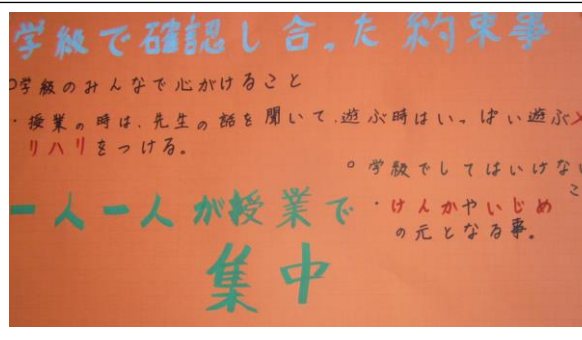 学級で確認し合った約束事
○学級のみんなで心がけること
・授業の時は、先生の話を聞いて、遊ぶ時はいっぱい遊ぶメ
リハリをつける。
○学級でしてはいけない
こ
・けんかやいじめ
の元となる事。
一人一人が授業で
集中